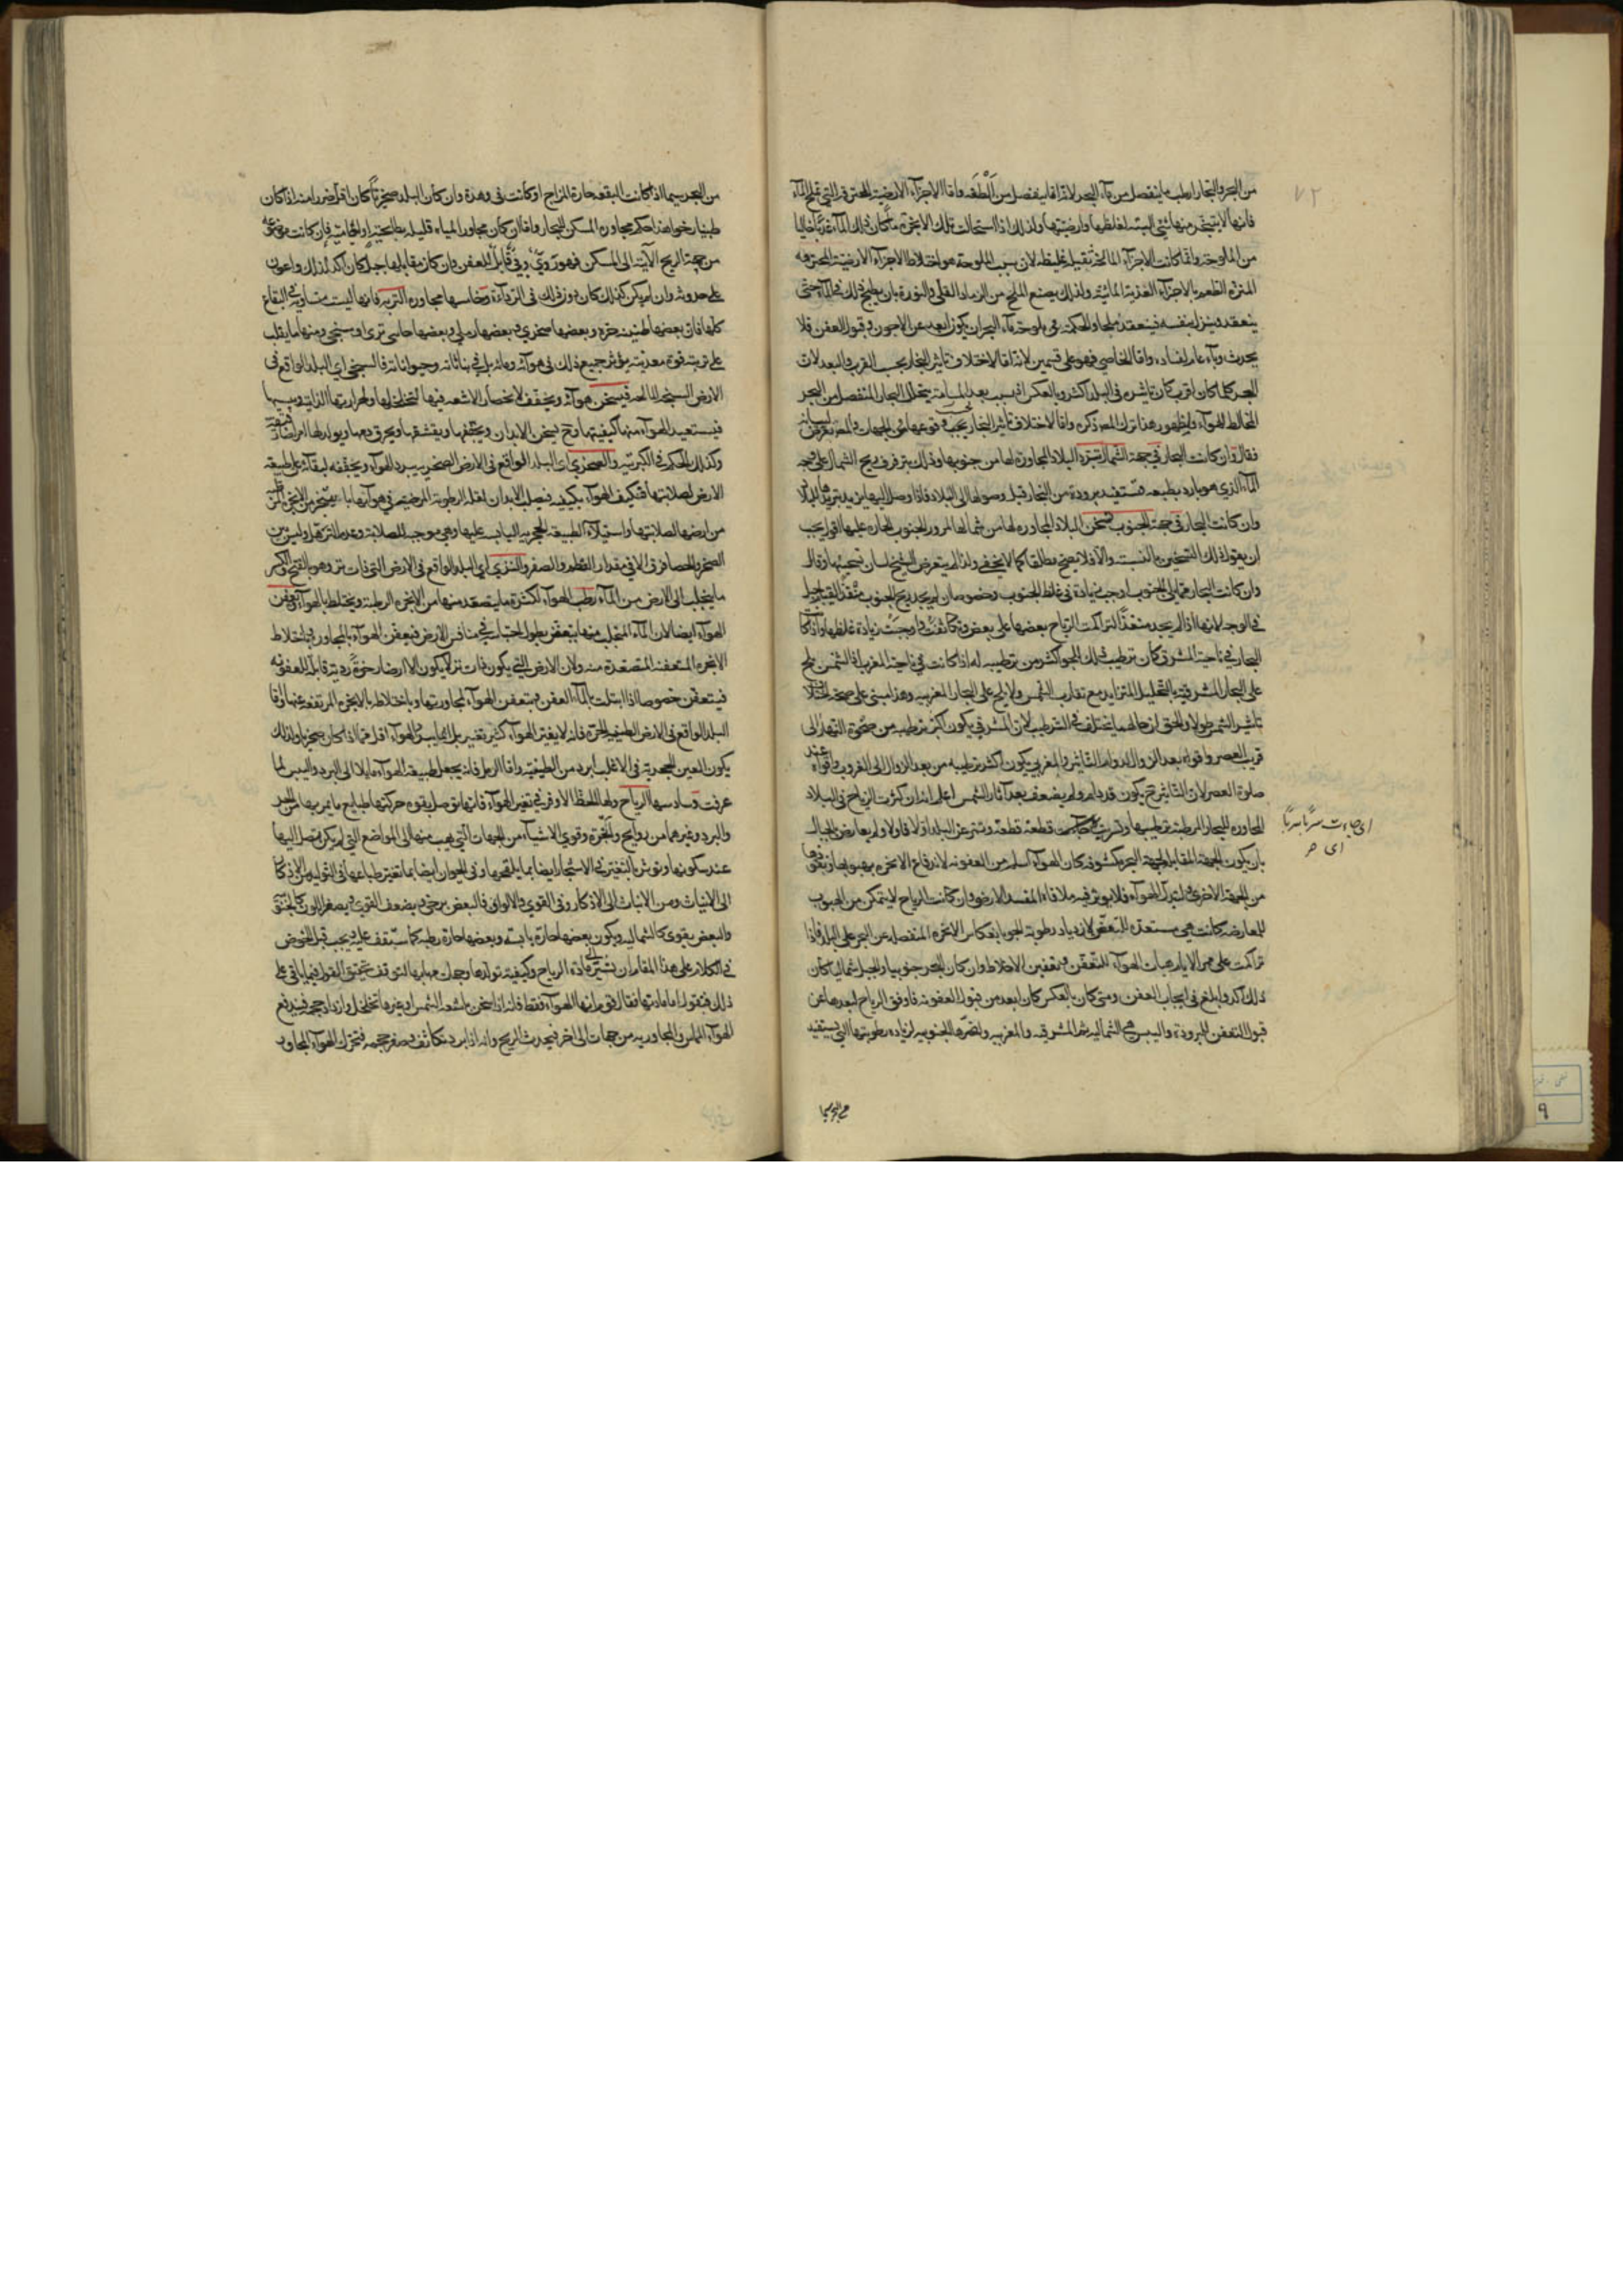 من البحر والبخار ارطب ما ينفصل من ماء البحر لانه انما ينفصل من الطفه واما الاجزاء الارضية المحترقة التي تملح الماء
فانها لا يتبخر منها شيء البته لغلظها وارضيتها ولذلك اذا استحالت تلك الابخرة ماء كان ذلك الماء عذبا خاليا
من الملوحة وانما كانت الاجزاء المالحة ثقيلة غليظه لان سبب الملوحة هو اختلاط الاجزاء الارضية المحترقه
المرة الطعم بالاجزاء العذبة المائية ولذلك يصنع الملح من الرماد والقلي والنورة بان يطبخ ذلك في الماء حتى
ينعقد وينزل بنفسه فينعقد ملحا والحكمة في ملوحة ماء البحر ان يكون ابعد عن الاجون وقبول العفن فلا
يحدث وباء عام لفساده واما الخاصي فهو على قسمين لانه اما لاختلاف تاثير البخار بحسب القرب والبعد لان
البحر كلما كان اقرب كان تاثيره في البلد اكثر وبالعكس اذ بسبب بعد المسافة يتحلل البخار المنفصل من البحر
المخالط للهواء ولظهور هذا ترك المص ذكره واما لاختلاف تاثير البخار بحسب وقوعها في الجهات والمص تعرض لبيانه
فقال فان كانت البحار في جهة الشمال تبرد البلاد المجاورة لها من جنوبها وذلك بترفرف ريح الشمال على وجه
الماء الذي هو بارد بطبعه فتستفيد برودة من البخار قبل وصولها الى البلاد فاذا وصل اليها يزيد تبريدها للبلاد
وان كانت البحار في جهة الجنوب تسخن البلاد المجاورة لها من شمالها لمرور الجنوب الحارة عليها اقول يجب
ان يقول ذلك التسخين بالنسبة والا فلا يصح مطلقا كما لا يخفى ولذا لم يتعرض الشيخ لبيان تسخينها وقال
وان كانت البحار مما يلي الجنوب اوجب زيادة في غلظ الجنوب وخصوصا ان لم يجد ريح الجنوب منفذا لقيام جبل
في الوجه لانها اذا لم يجد منفذا لتراكمت الرياح بعضها على بعض وتكاثفت واوجبت زيادة غلظها واذا كانت
البحار في ناحية المشرق كان ترطيب تلك للجو اكثر من ترطيبه له اذا كانت في ناحية المغرب اذ الشمس تلح
على البحار المشرقية بالتحليل المتزايد مع تقارب الشمس ولا تلح على البحار المغربيه وهذا مبني على صحة اختلاف
تاثير الشمس طولا والحق ان حالهما يختلف في الترطيب لان المشرقي يكون اكثر ترطيبه من ضحوة النهار الى
قريب العصر واقواه بعد الزوال لدوام التاثير والمغربي يكون اكثر ترطيبه من بعد الزوال الى الغروب واقواه عند
صلوة العصر لان التاثير ح يكون قد دام ولم يضعف بعد آثار الشمس اعلم انه ان كثرت الرياح في البلاد
المجاوره للبحار المرطبة بترطيبها وتسربت قطعة قطعة وتمر عن البلد اولا فاولا ولم يعارض بالجبال
بان يكون الجهة المقابلة لجهة البحر مكشوفه كان الهواء اسلم من العفونه لاندفاع الابخره بهبوبها ونفوذها
من الجهة الاخرى وتبدل الهواء فلا يوثر فيه ملاقاة المفسد الارضي وان كانت الرياح لا يتمكن من الهبوب
للمعارضه كانت هي مستعدة للتعفن لازدياد رطوبة الجو بانعكاس الابخره المنفصله عن البحر على البلد فاذا
تراكمت على مر الايام هيات الهواء للتعفن وتعفين الاخلاط وان كان البحر جنوبيا والجبل شماليا كان
ذلك اكد وابلغ في ايجاب العفن ومتى كان بالعكس كان ابعد من قبول العفونه فاوفق الرياح لبعدها عن
قبول التعفن للبرودة واليبس هي الشماليه ثم المشرقيه والمغربيه واضرها الجنوبيه لزيادة رطوبتها التي يستفيد
من البحر سيما
اى جاءت سربا سربا
٧٢
من البحر سيما اذا كانت البقعه حارة المزاج او كانت في وهدة وان كان البلد صخريا كان اقل ضررا منه اذا كان
طينيا رخوا هذا حكم مجاورة المسكن للبحار واما ان كان مجاور المياه قليله بطايحية او اجامية فان كانت موضوعة
من جهة الريح الآتية الى المسكن فهو رديّ وفيّ قابل للعفن وان كان مقابلها جبل كان آكد لذلك واعون
على حدوثه وان لم يكن كذلك كان دون ذلك في الرداءة وخامسها مجاورة التربه فانها ليست متساوية في البقاع
كلها فان بعضها طينية حره وبعضها صخري وبعضها رملي وبعضها حماسي نزي او سبخي ومنها ما يغلب
على تربته قوة معدنية يؤثر جميع ذلك في هوائه ومائه بل في نباتاته وحيواناته فالسبخي اي البلد الواقع في
الارض السبخة المالحة فيسخن هواؤه ويجفف لانحصار الاشعه فيها لتخلخلها ولحرارتها الذاتيه ويبسها
فيستعيد الهواء منها كيفيتها وح تسخن الابدان ويجففها ويقشفها ويحرق دمها ويولد لها امراضا دموية
وكذلك الحكم في الكبريتيه والصخري اي البلد الواقع في الارض الصخريه يبرد الهواء ويجففه لبقائه على طبيعة
الارض لصلابتها فتكيف الهواء بكيفيه فيصلب الابدان لقلة الرطوبة المرخيه في هوائها بما يتبخر من الابخرة
من ارضها لصلابتها واستيلاء الطبيعة الحجريه اليابسه عليها وهي موجبة للصلابة وعدم الترهل وليس بين
الصخر والحصا فرق الا في مقدار العظم والصغر والنزي اي البلد الواقع في الارض التي ذات نز وهو بالفتح والكسر
ما يتحلب الى الارض من الماء رطب الهواء لكثرة ما يتصعد منها من الابخره الرطبة ويختلط بالهواء ويعفن
الهواء ايضا لان الماء المتحلب منها يتعفن بطول احتباسه في منافس الارض فيعفن الهواء بالمجاوره وباختلاط
الابخره المتعفنة المتصعدة منه ولان الارض التي يكون ذات نز لا يكون الا ارضا رخوة ردية قابلة للعفونه
فيتعفن خصوصا اذا ابتلت بالماء العفن ويتعفن الهواء لمجاورتها وباختلاطه بالابخره المرتفعه عنها واما
البلد الواقع في الارض الطينيه الحرة فانه لا يغير الهواء كثير تغيير بل انما يبس الهواء اقل مما اذا كان صخريا ولذلك
يكون العين الحجرية في الاغلب ابرد من الطينيه واما الرمل فانه يجعل طبيعة الهواء مايلا الى البرد واليبس لما
عرفت وسادسها الرياح ولها الحظ الاوفر في تغير الهواء فانها توصل بقوة حركتها طبايع ما يمر بها من الحر
والبرد وغيرهما من روايح وابخرة وقوي الاشياء من الجهات التي يهب منها الى المواضع التي لم يكن متصل اليها
عند سكونها وتوثر بالتغير في الاشجار ايضا بما يلقحها وفي الحيوان ايضا بما تغير طباعها في التوليد من الاذكار
الى الايناث ومن الايناث الى الاذكار وفي القوي والالوان فالبعض يرخي ويضعف القوي ويصفر اللون كالجنوبية
والبعض يقوى كالشماليه ويكون بعضها حارة يابسه وبعضها حارة رطبه كما ستقف عليه ويجب قبل الخوض
في الكلام على هذا المقام ان نشير الى مادة الرياح وكيفية تولدها وجهات مهابها لتوقف تحقيق القول فيما ياتي على
ذلك فنقول اما مادتها فقال قوم انها الهواء فقط فانه اذا سخن باشعة الشمس او غيرها تخلخل وازداد حجمه فيدفع
الهواء المماس والمجاور به من جهات الى اخر فيحدث الريح وانه اذا برد يتكاثف ويصغر حجمه فيتحرك الهواء المجاور